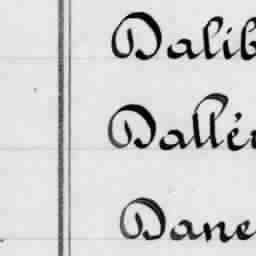 Dalib
Dallér
Dane